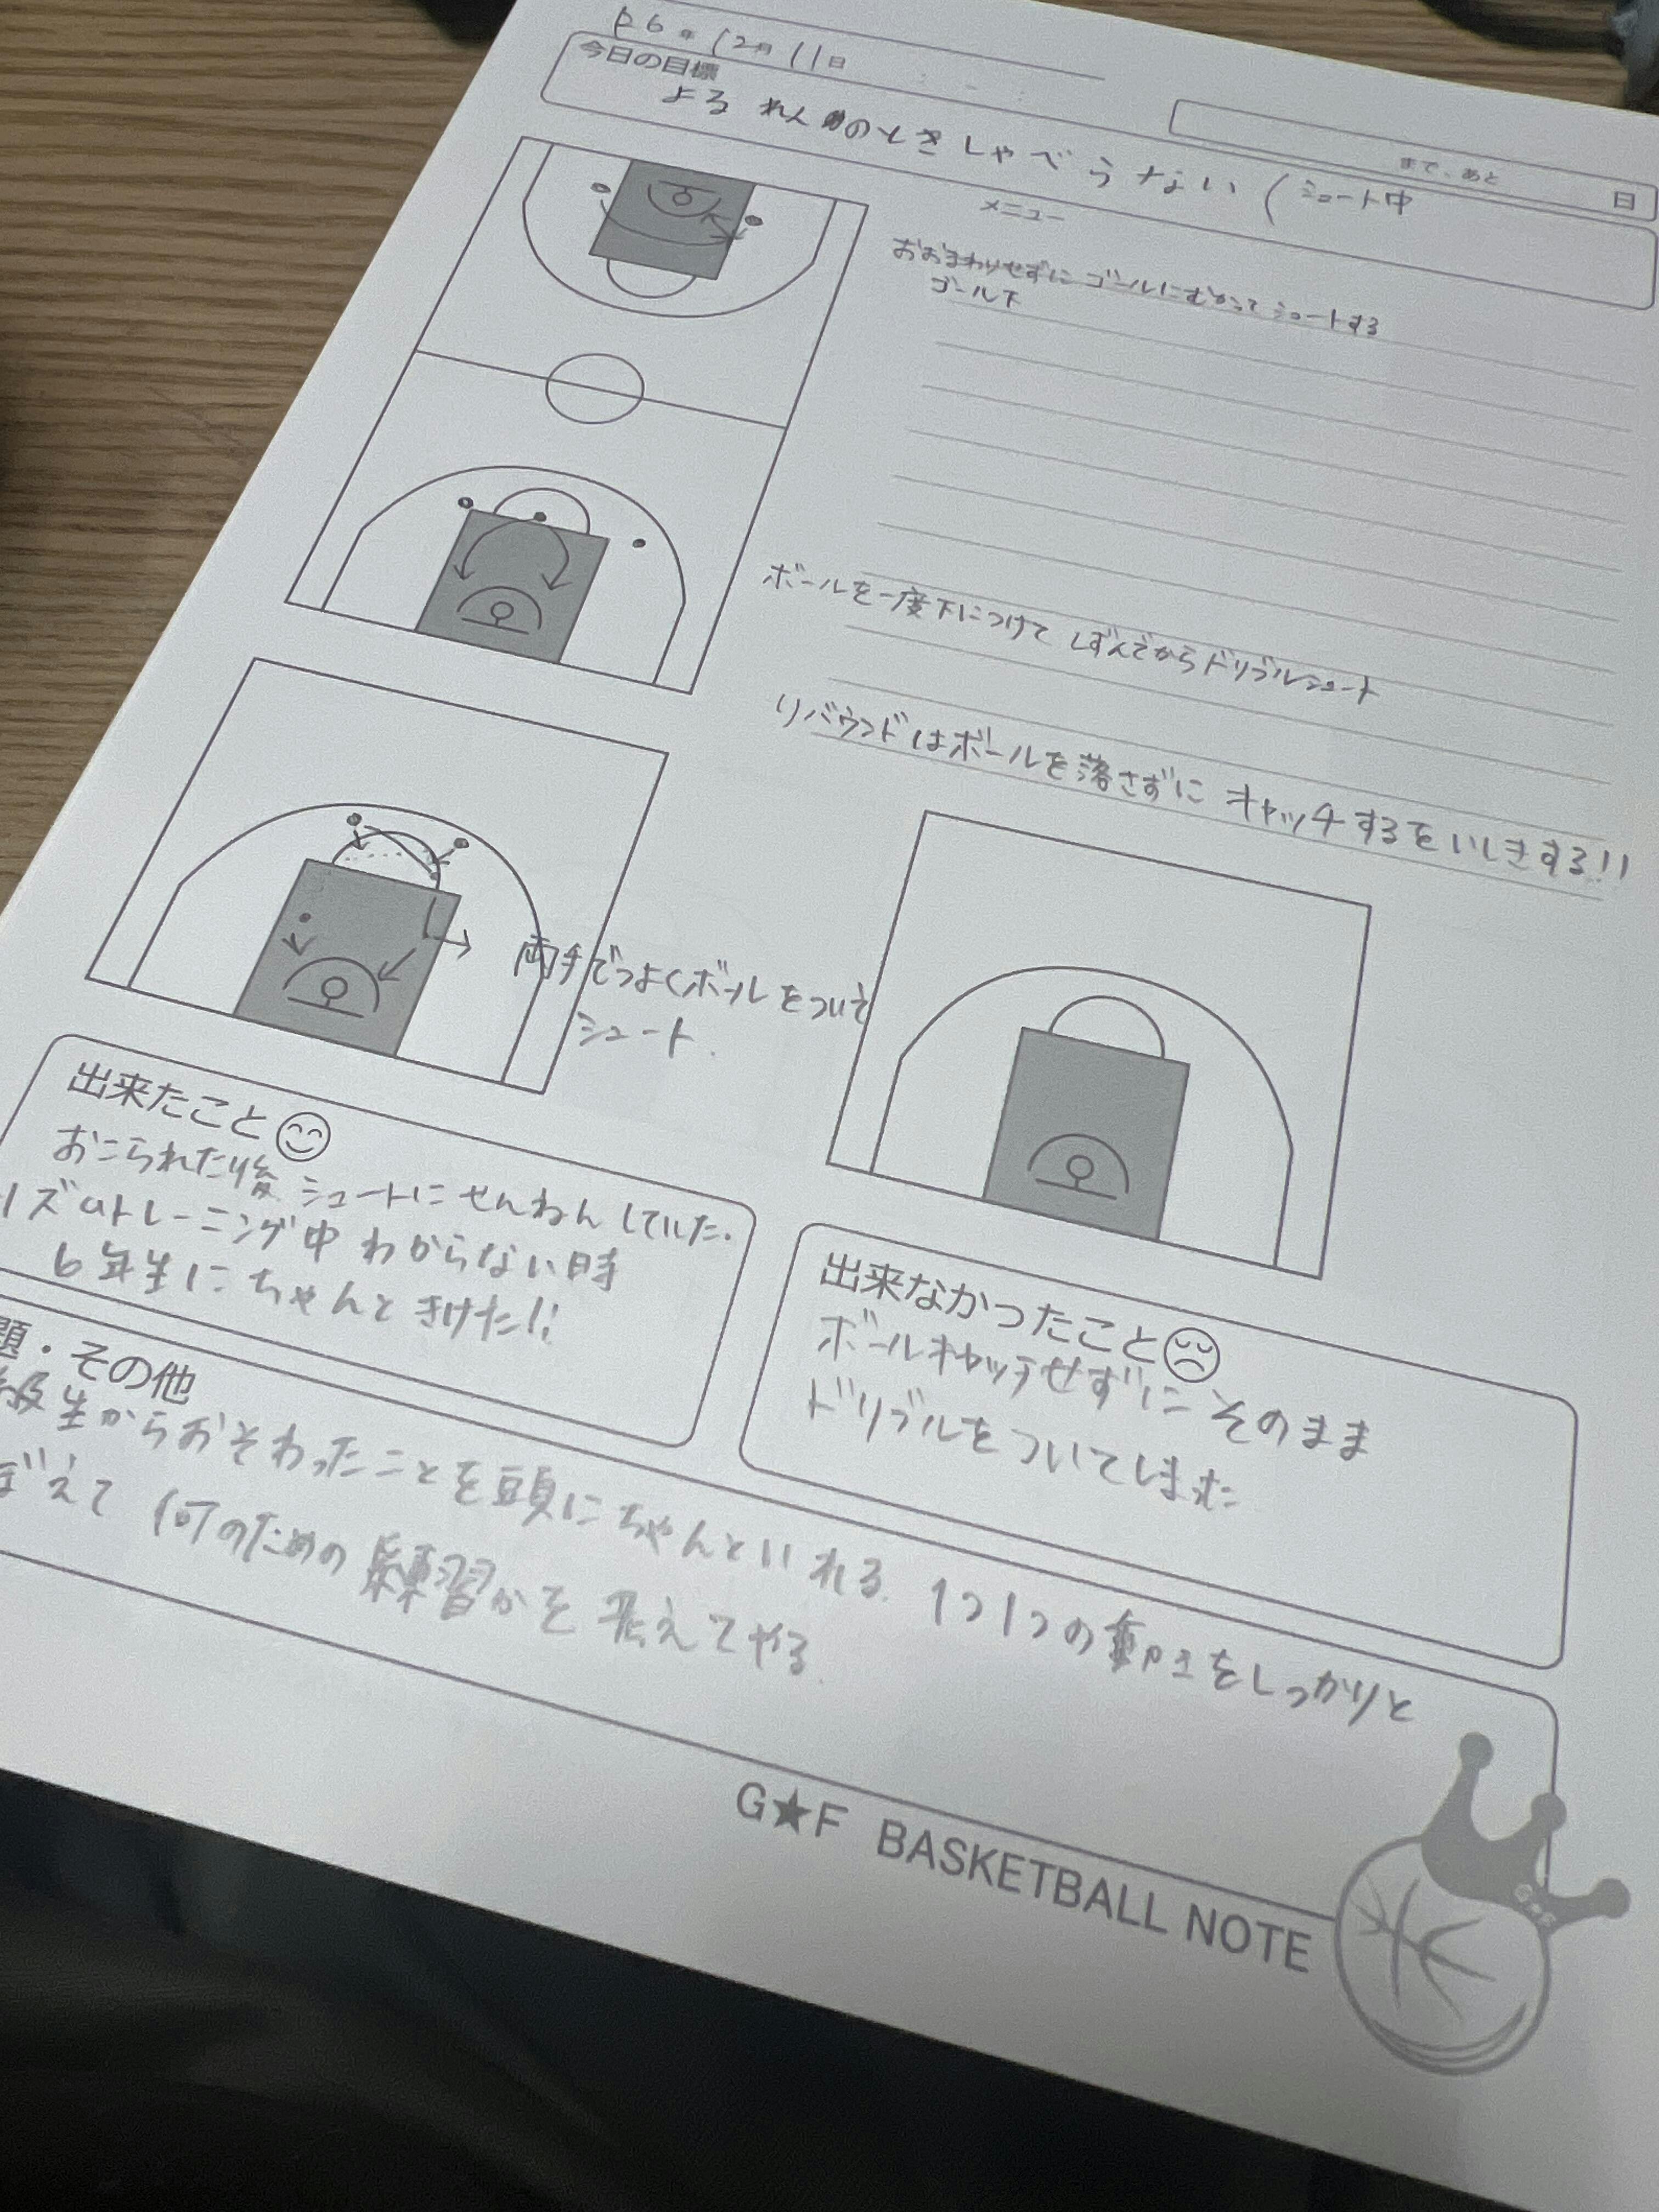 R6年 12月 11日
まで、あと 日
今日の目標
よる れんのとき しゃべらない (シュート中
メニュー
おおまわりせずに ゴールにむかって シュートする
ゴール下
ボールを一度下につけて しずんでから ドリブルシュート
リバウンドはボールを落さずに キャッチするをいしきする!!
両手でつよくボールをついて
シュート.
出来たこと
おこられた後 シュートにせんねんしていた.
イズのトレーニング中 わからない時
6年生に ちゃんと きけた!!
出来なかったこと
ボールキャッチせずに そのまま
ドリブルをついてしまった
題・その他
級生からおそわったことを頭に ちゃんといれる. 1つ1つの動きをしっかりと
ぼえて 何のための 練習かを 考えてやる.
G★F BASKETBALL NOTE